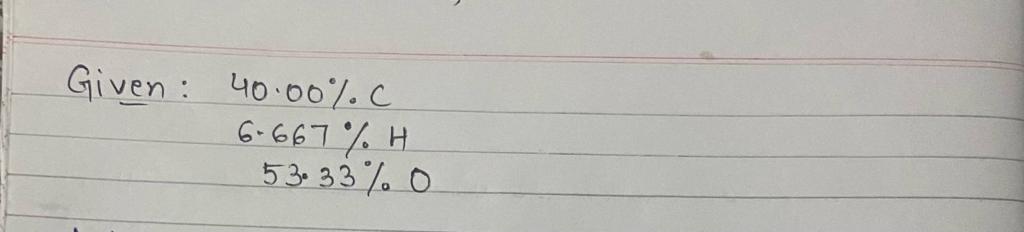 Given : 40.00% C
6.667 % H
53.33% O